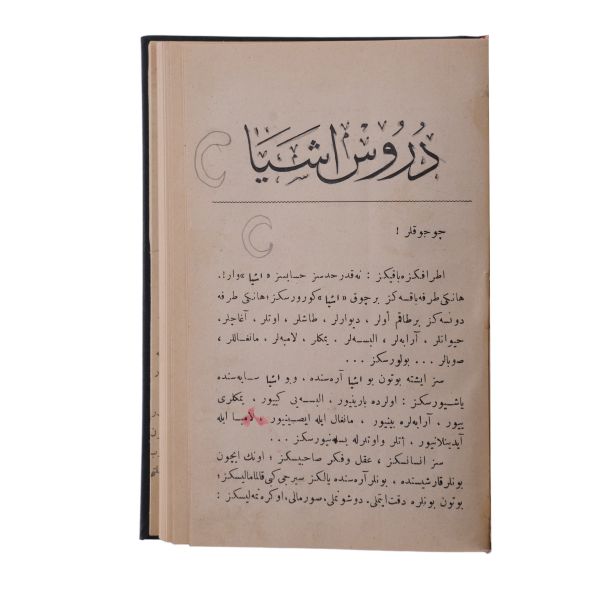 دُرُوسِ اشیا
چوجوقلر !
اطرافکزه باقیکز : نه قدر حدسز حسابسز « اشیا » وار !.
هانکی طرفه باقسه کز بر چوق « اشیا » کورورسکز ؛ هانکی طرفه
دونسه کز بر طاقم أولر ، دیوارلر ، طاشلر ، اوتلر ، آغاجلر ،
حیوانلر ، آرابه لر ، البسه لر ، یمکلر ، لامبه لر ، مانغاللر ،
صوبالر ... بولورسکز ...
سز ایشته بوتون بو اشیا آره سنده ، و بو اشیا سایه سنده
یاشیورسکز : اولرده بارینیور ، البسه یی کییور ، یمکلری
ییور ، آرابه لره بینیور ، مانغال ایله ایصینیور ، لامبا ایله
آیدینلانیور ، أتلر و اوتلر له بسله نیورسکز ...
سز انسانسکز ، عقل و فکر صاحبیسکز ؛ اونک ایچون
بونلر قارشیسنده ، بونلر آره سنده یالکز سیرجی کبی قالمامالیسکز ؛
بوتون بونلره دقت ایتملی ، دوشونملی ، صورمالی ، اوکره نمه لیسکز :